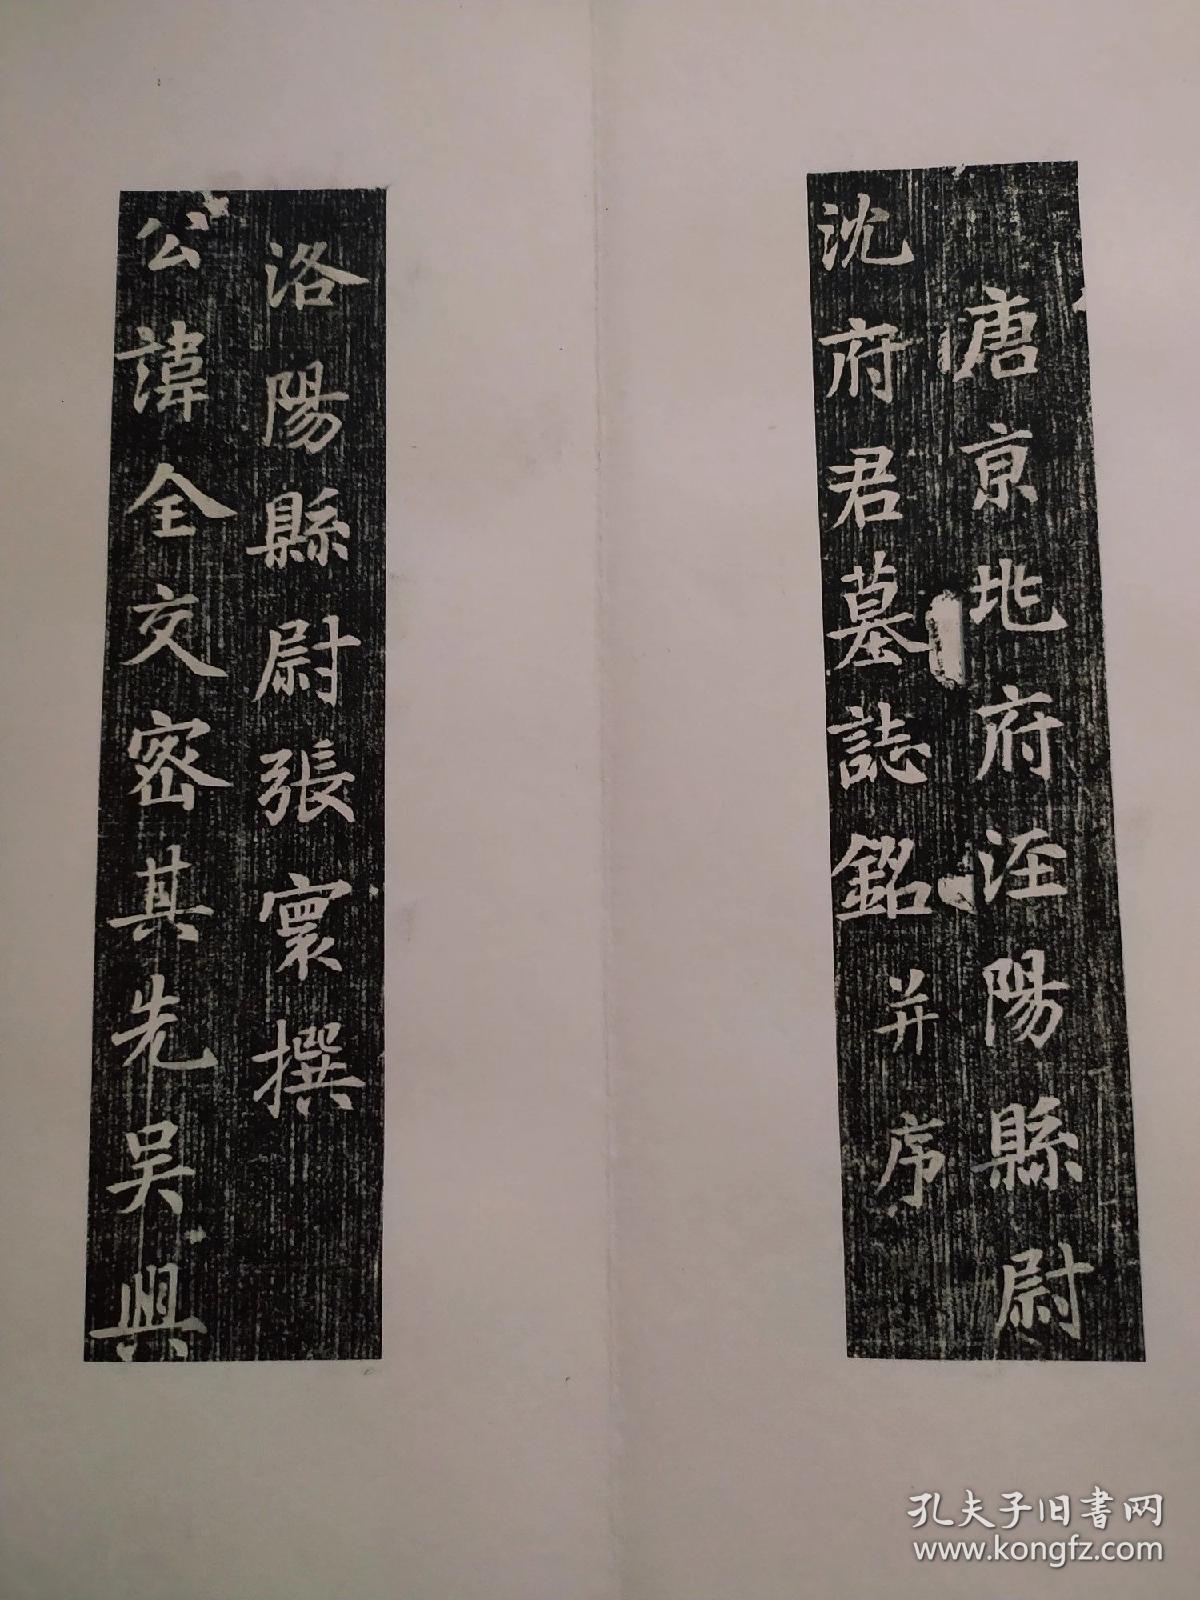 唐京兆府泾陽縣尉
沈府君墓誌銘并序
洛陽縣尉張寰撰
公諱全交密其先吴興
孔夫子旧书网
www.kongfz.com